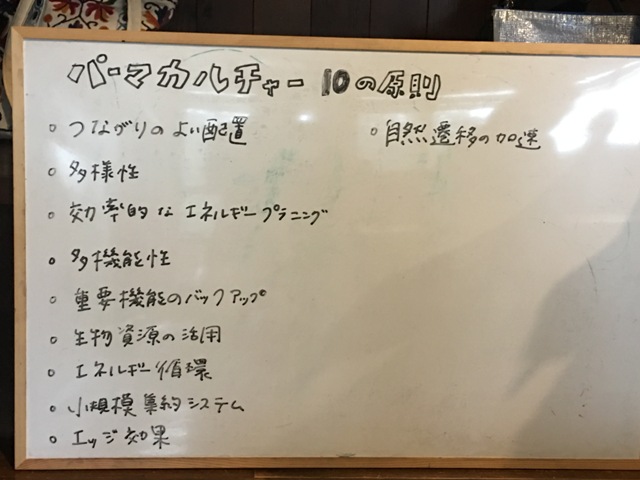 パーマカルチャー 10の原則
○ つながりのよい配置
○ 多様性
○ 効率的なエネルギープラニング
○ 多機能性
○ 重要機能のバックアップ
○ 生物資源の活用
○ エネルギー循環
○ 小規模集約システム
○ エッジ効果
○ 自然遷移の加速